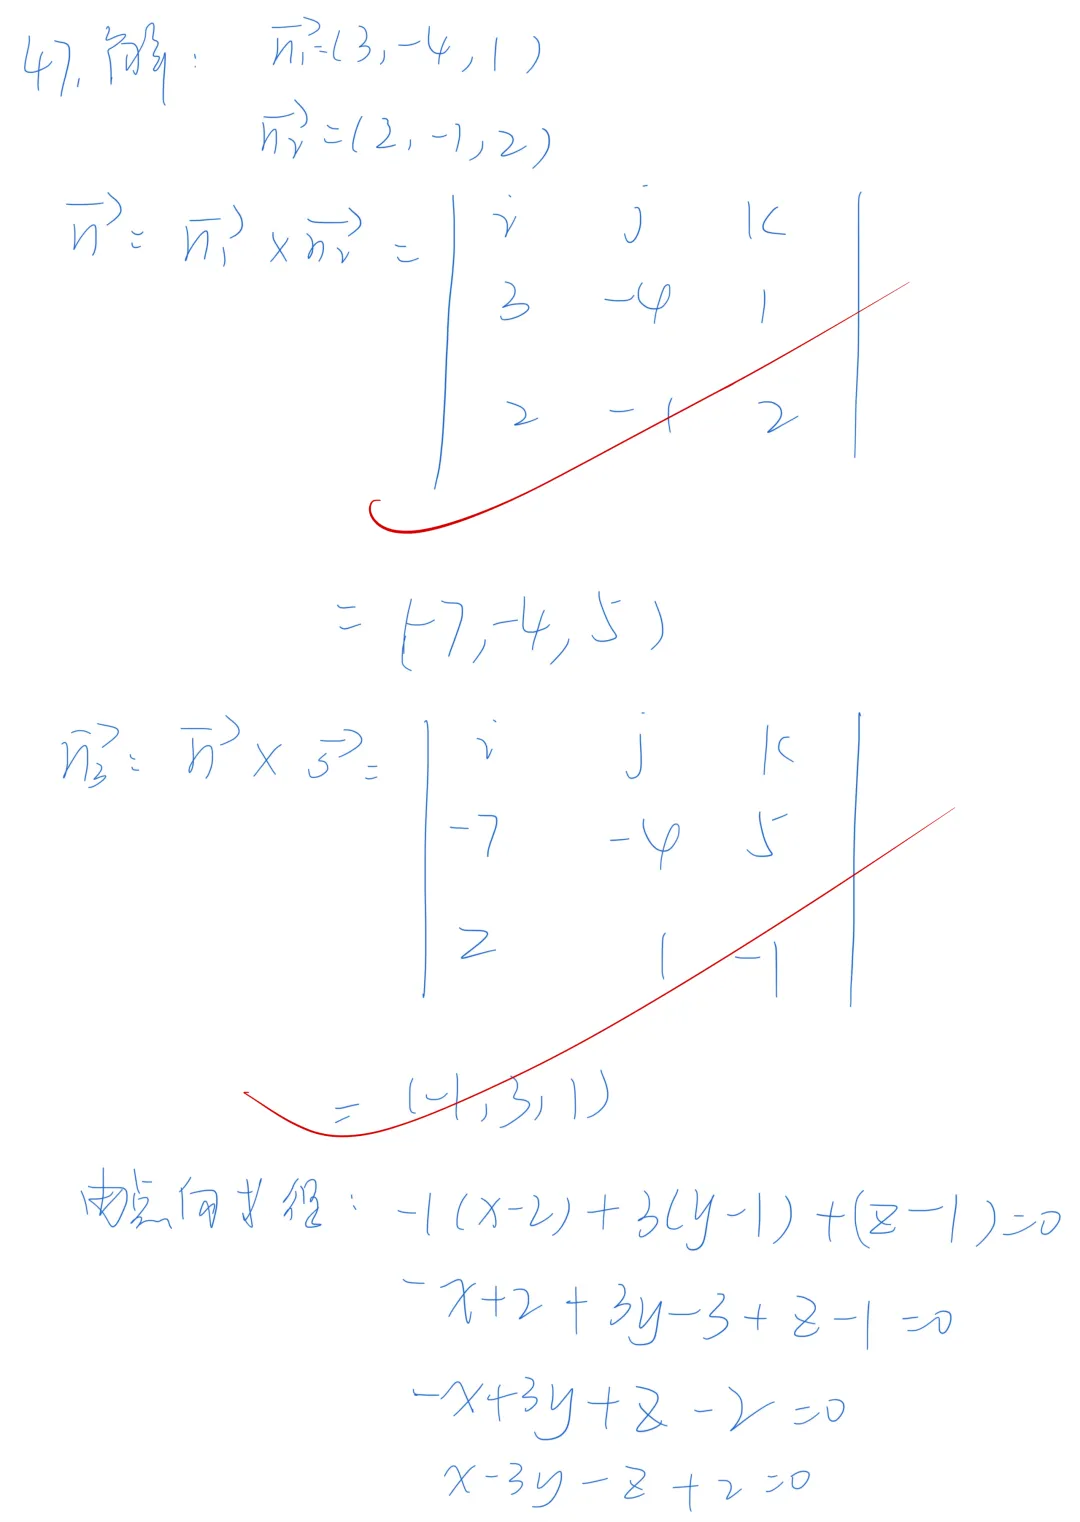 47. 解: n₁⃗=(3,-4,1)
n₂⃗=(2,-1,2)
n⃗= n₁⃗×n₂⃗ = | i j k |
| 3 -4 1 |
| 2 -1 2 |
= (-7,-4,5)
n₃⃗= n⃗×s⃗= | i j k |
| -7 -4 5 |
| 2 1 -1 |
= (-1,3,1)
由点向式得: -1(x-2)+3(y-1)+(z-1)=0
-x+2+3y-3+z-1=0
-x+3y+z-2=0
x-3y-z+2=0